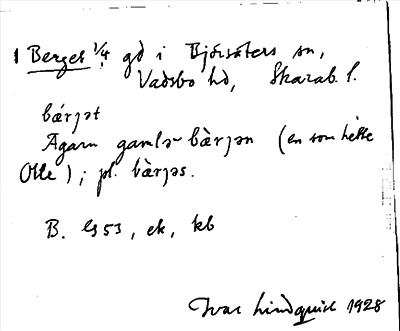 1 Berget 1/4 gd i Björsäters sn,
Vadsbo hd, Skarab. l.
bárjət
Ägarn gamlə bàrjən (en som hètte
Olle); pl. bàrjəs.
B. Es 53, ek, kb
Ivar Lindquist 1928